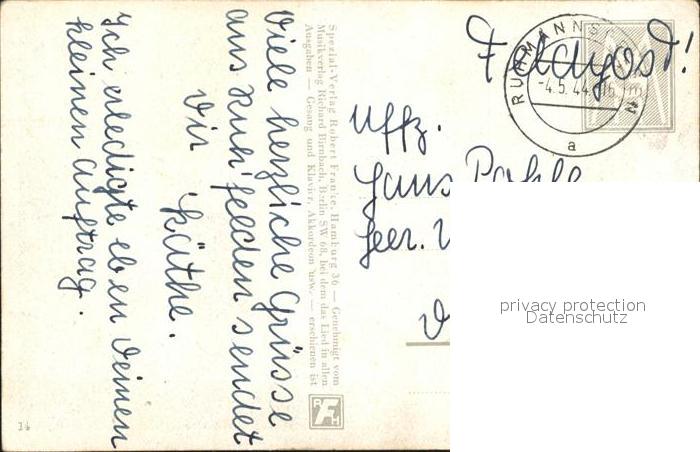 Feldpost!
RUHMANNS
-4.5.44.16
a
Uffz.
Hans Pahle
privacy protection
Datenschutz
Spezial-Verlag Robert Franke, Hamburg 36 — Genehmigt vom
Musikverlag Richard Birnbach, Berlin SW 68, bei dem das Lied in allen
Ausgaben — Gesang und Klavier, Akkordeon usw. — erschienen ist
Viele herzliche Grüsse
aus Ruh'felden sendet
Dir Käthe.
Ich erledigte eben Deinen
kleinen Auftrag.
16